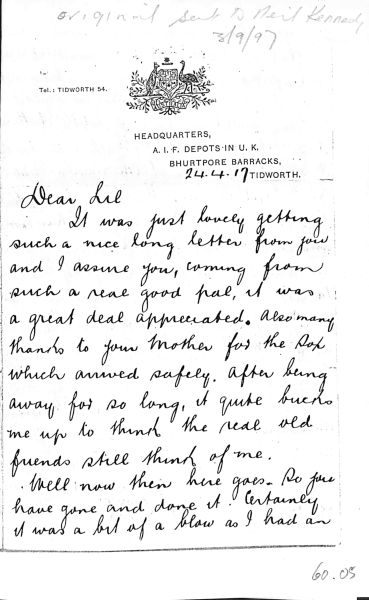 original sent to Neil Kennedy
3/9/97
Tel: TIDWORTH 54.
HEADQUARTERS,
A. I. F. DEPOTS IN U. K.
BHURTPORE BARRACKS,
24.4.17 TIDWORTH.
Dear Lil
It was just lovely getting
such a nice long letter from you
and I assure you, coming from
such a real good pal, it was
a great deal appreciated. Also many
thanks to your Mother for the Sox
which arrived safely. After being
away for so long, it quite bucks
me up to think the real old
friends still think of me.
Well now then here goes. So you
have gone and done it. Certainly
it was a bit of a blow as I had an
60.05